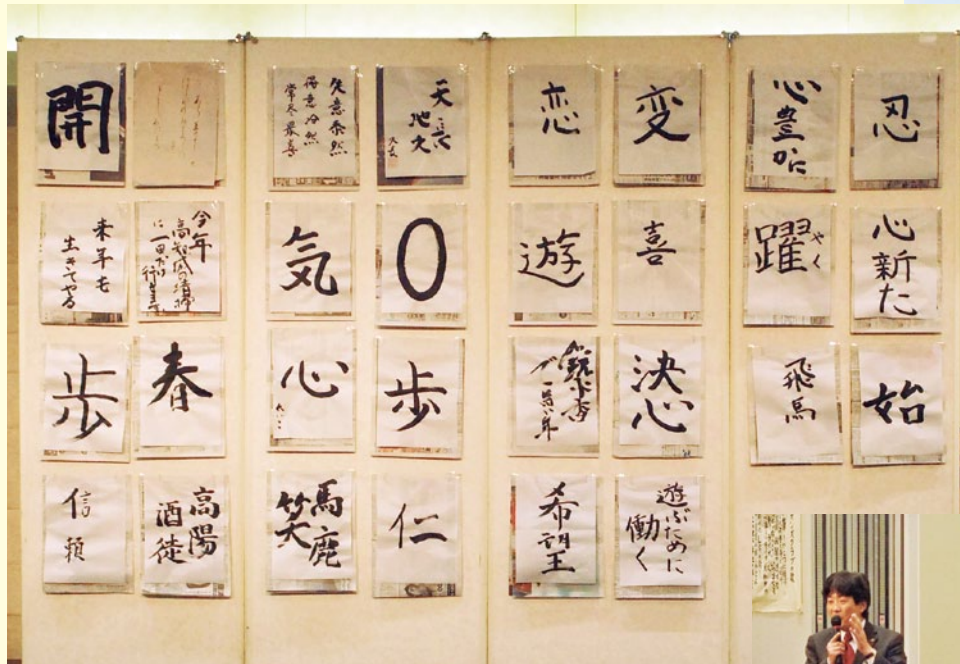 開
失意泰然
得意冷然
恋
変
心豊かに
忍
来年も
生きてやる
今年
高知城の清掃
に一回だけ
行きます
気
〇
遊
喜
躍
やく
心新た
歩
春
心
歩
決心
飛馬
始
信頼
高陽
酒徒
馬鹿
笑
仁
希望
遊ぶために
働く